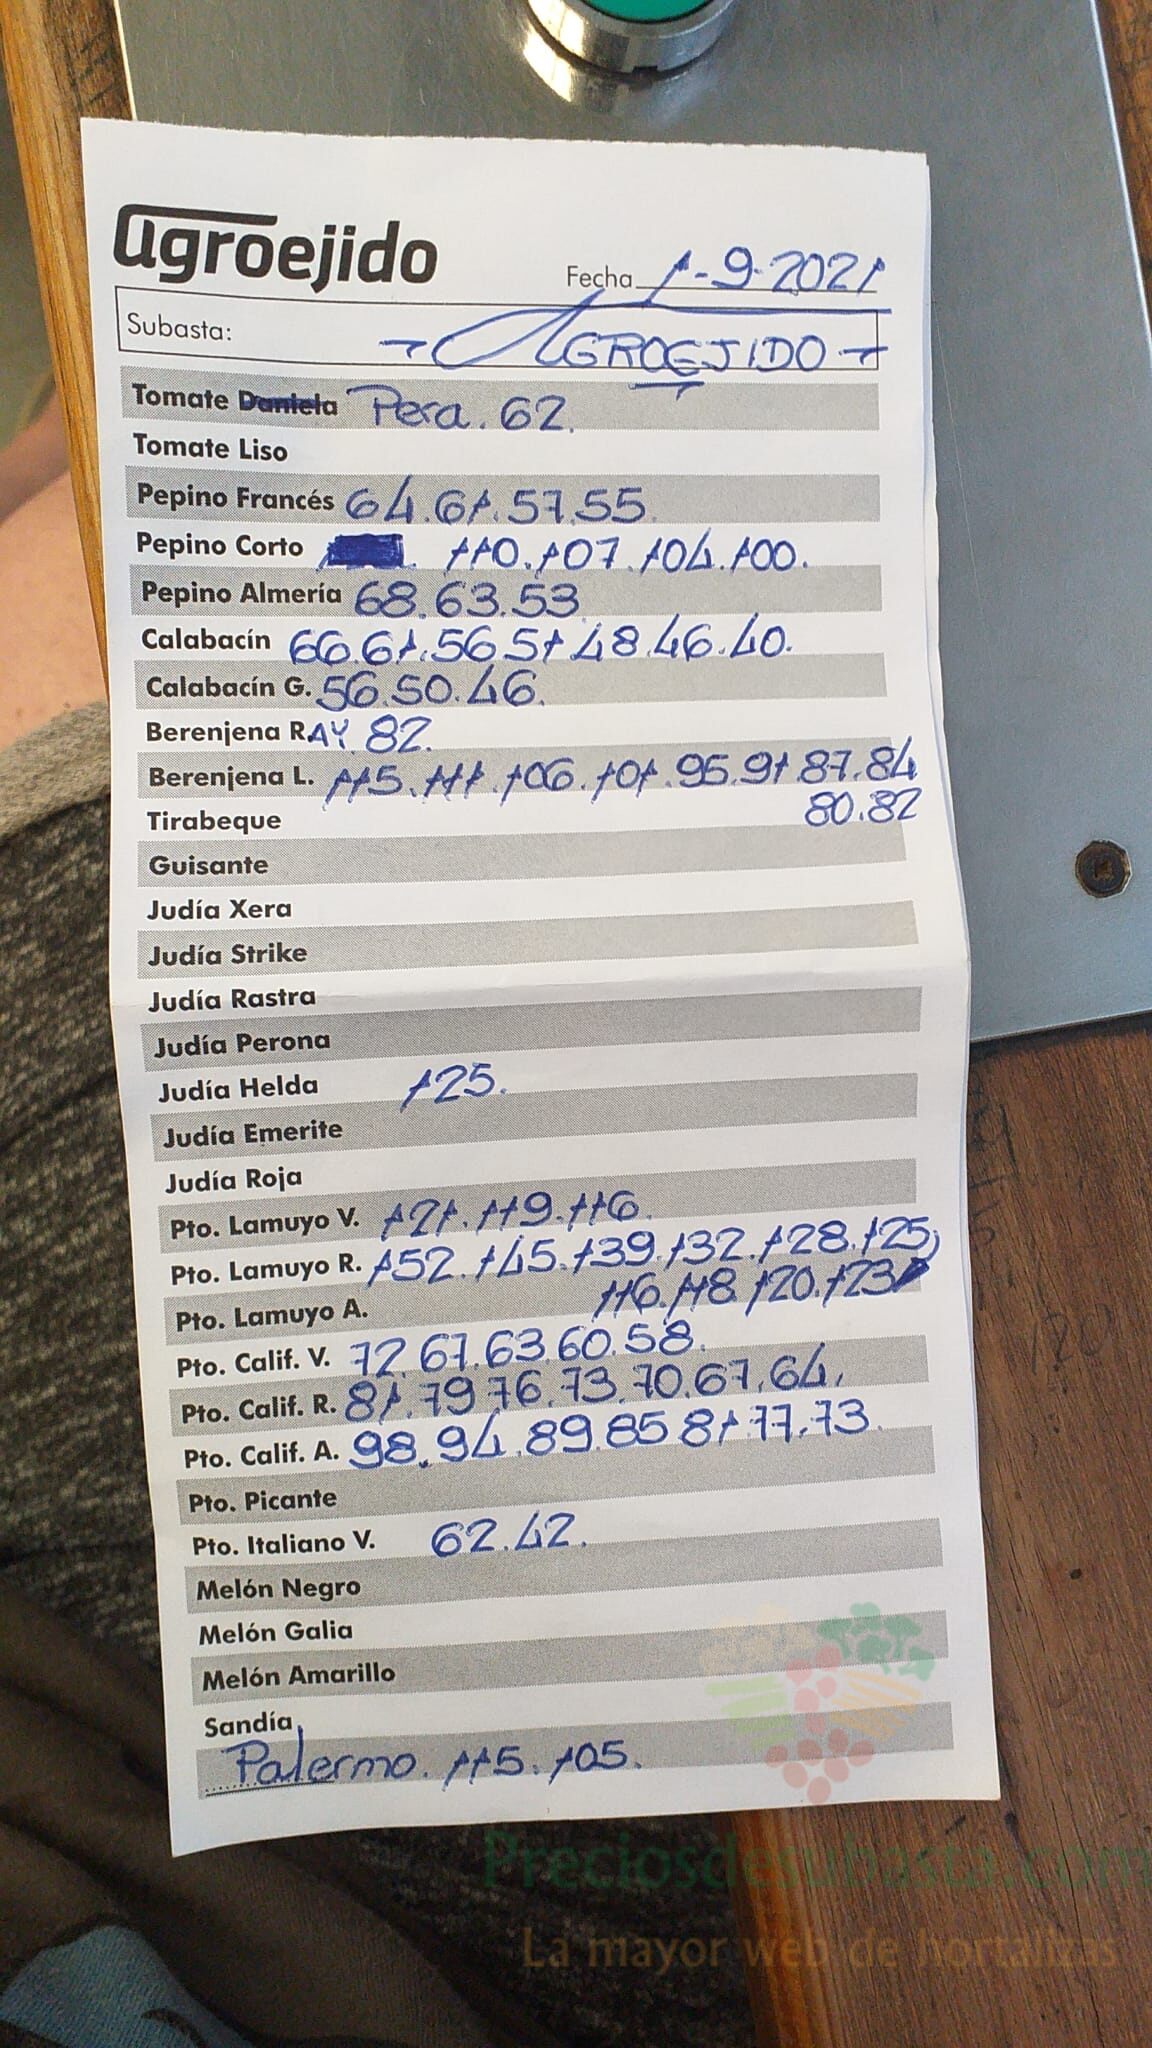 agroejido
Fecha 1-9-2021
Subasta: AGROEJIDO
Tomate Daniela Pera. 62.
Tomate Liso
Pepino Francés 64.61.57.55.
Pepino Corto 110.107.104.100.
Pepino Almería 68.63.53
Calabacín 66.61.56.51.48.46.40.
Calabacín G. 56.50.46.
Berenjena RAY. 82.
Berenjena L. 115.111.106.101.95.91.87.84
80.82
Tirabeque
Guisante
Judía Xera
Judía Strike
Judía Rastra
Judía Perona
Judía Helda 125.
Judía Emerite
Judía Roja
Pto. Lamuyo V. 121.119.116.
Pto. Lamuyo R. 152.145.139.132.128.125
116.118.120.123
Pto. Lamuyo A.
Pto. Calif. V. 72.67.63.60.58.
Pto. Calif. R. 81.79.76.73.70.67.64.
Pto. Calif. A. 98.94.89.85.81.77.73.
Pto. Picante
Pto. Italiano V. 62.42.
Melón Negro
Melón Galia
Melón Amarillo
Sandía
Palermo. 115.105.
Preciosdesubasta.com
La mayor web de hortalizas